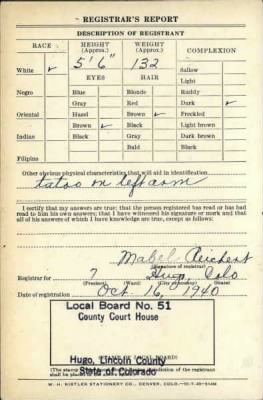 REGISTRAR'S REPORT
DESCRIPTION OF REGISTRANT
RACE HEIGHT (Approx.) WEIGHT (Approx.) COMPLEXION
White ✓ 5' 6" 132 Sallow
EYES HAIR Light
Negro Blue Blonde Ruddy
Gray Red Dark ✓
Oriental Hazel Brown ✓ Freckled
Brown ✓ Black Light brown
Indian Black Gray Dark brown
Bald Black
Filipino
Other obvious physical characteristics that will aid in identification
tatoo on left arm
I certify that my answers are true; that the person registered has read or has had read to him his own answers; that I have witnessed his signature or mark and that all of his answers of which I have knowledge are true, except as follows:
Mabel Reichert
(Signature of registrar)
Registrar for 7 Hugo, Colo
(Precinct) (Ward) (City or county) (State)
Date of registration Oct. 16, 1940
Local Board No. 51
County Court House
Hugo, Lincoln County
State of Colorado
W. H. KISTLER STATIONERY CO., DENVER, COLO.